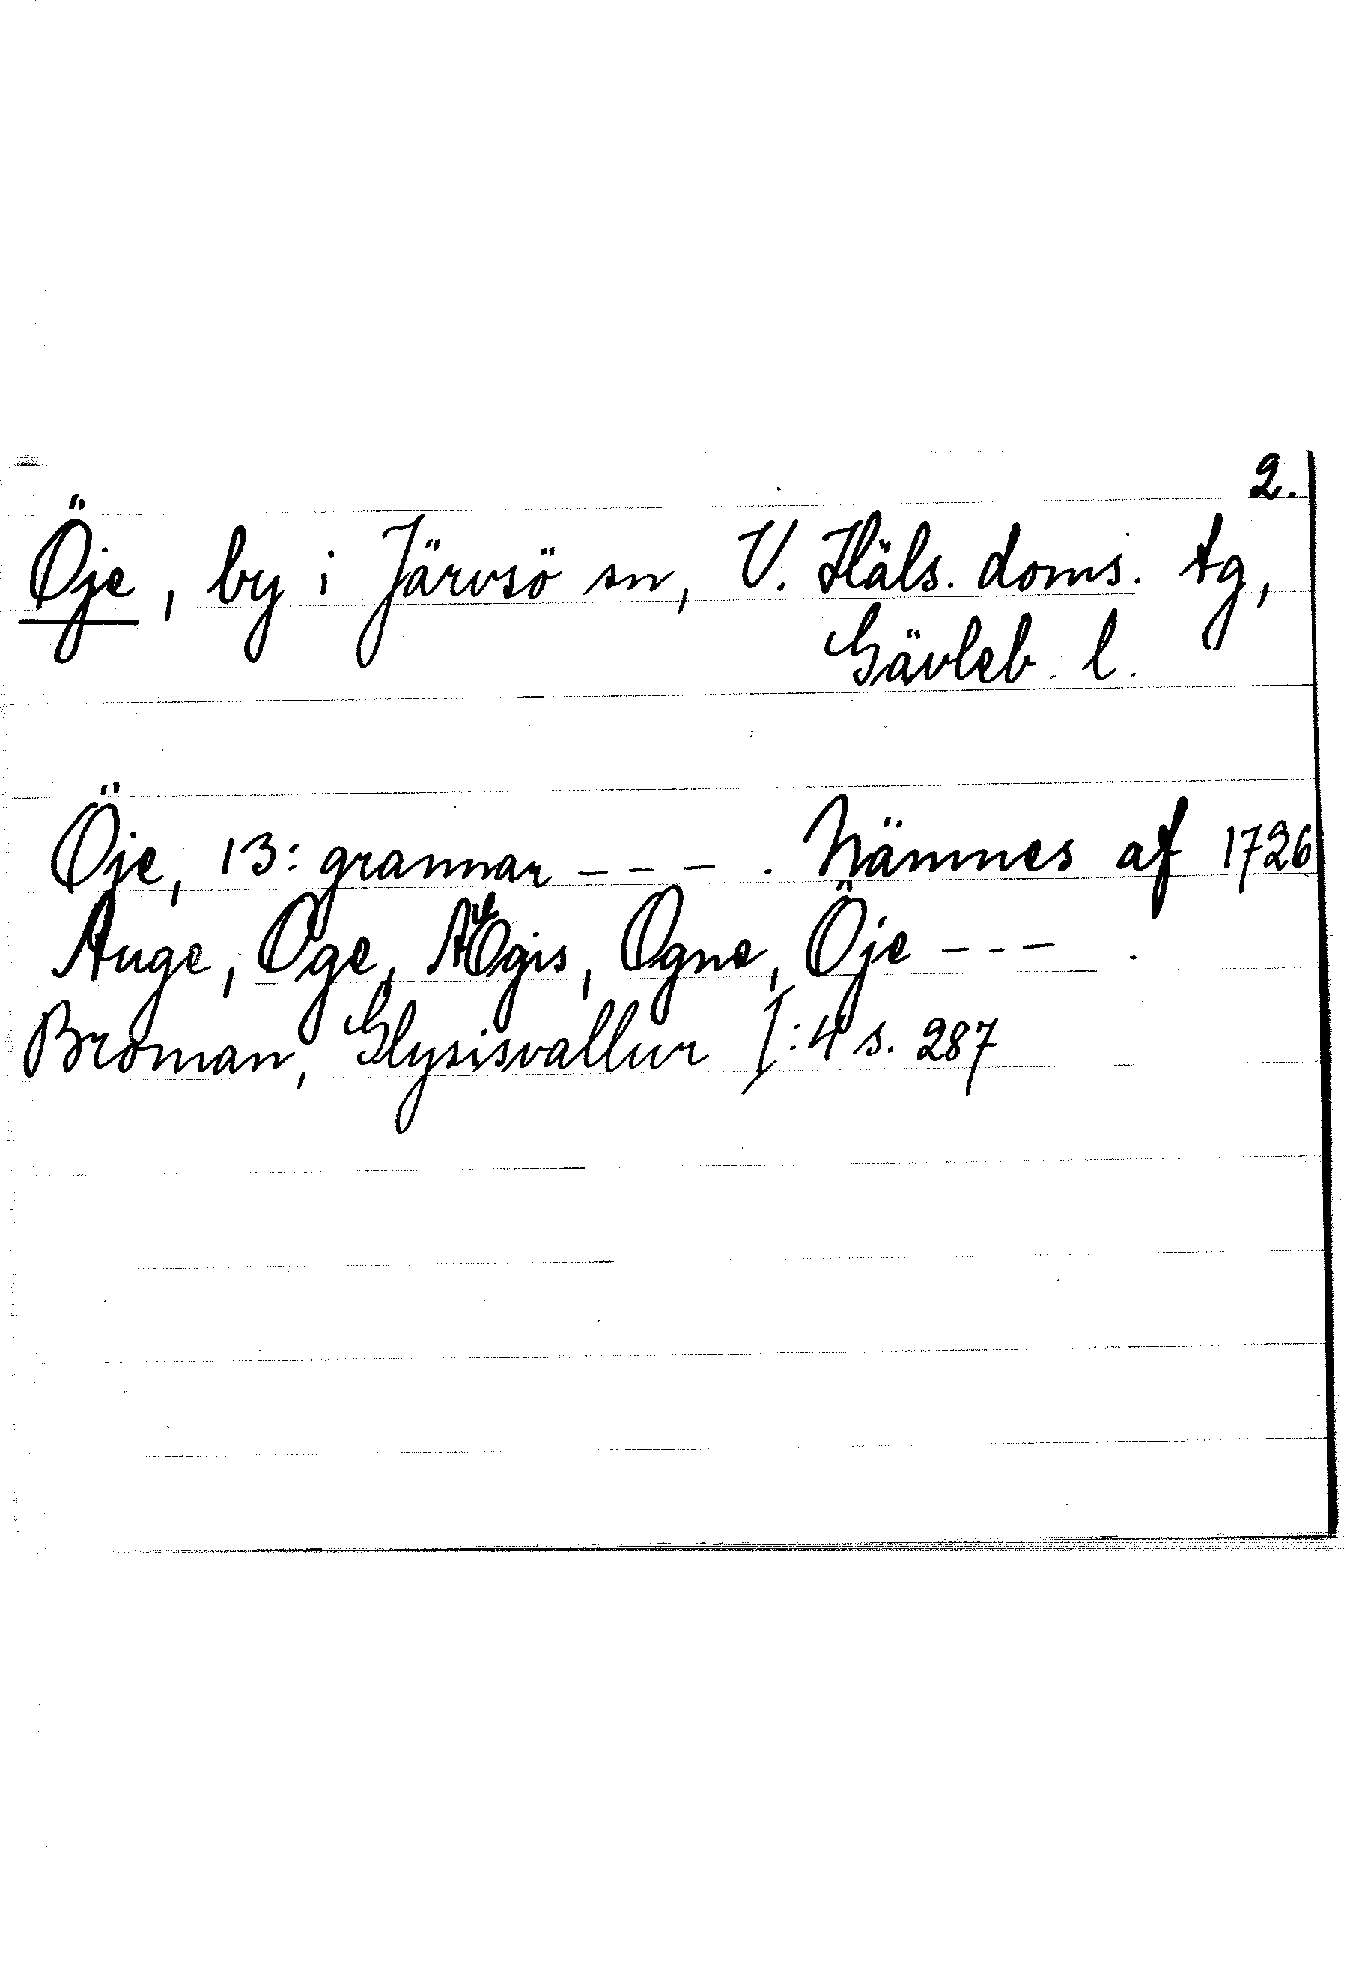 2.
Öje, by i Järvsö sn, V. Häls. doms. tg,
Gävleb. l.
Öje, 13: grannar - - - . Nämnes af 1726
Auge, Oge, Ögis, Ogne, Öje - - - .
Broman, Glysisvallur I:4 s. 287